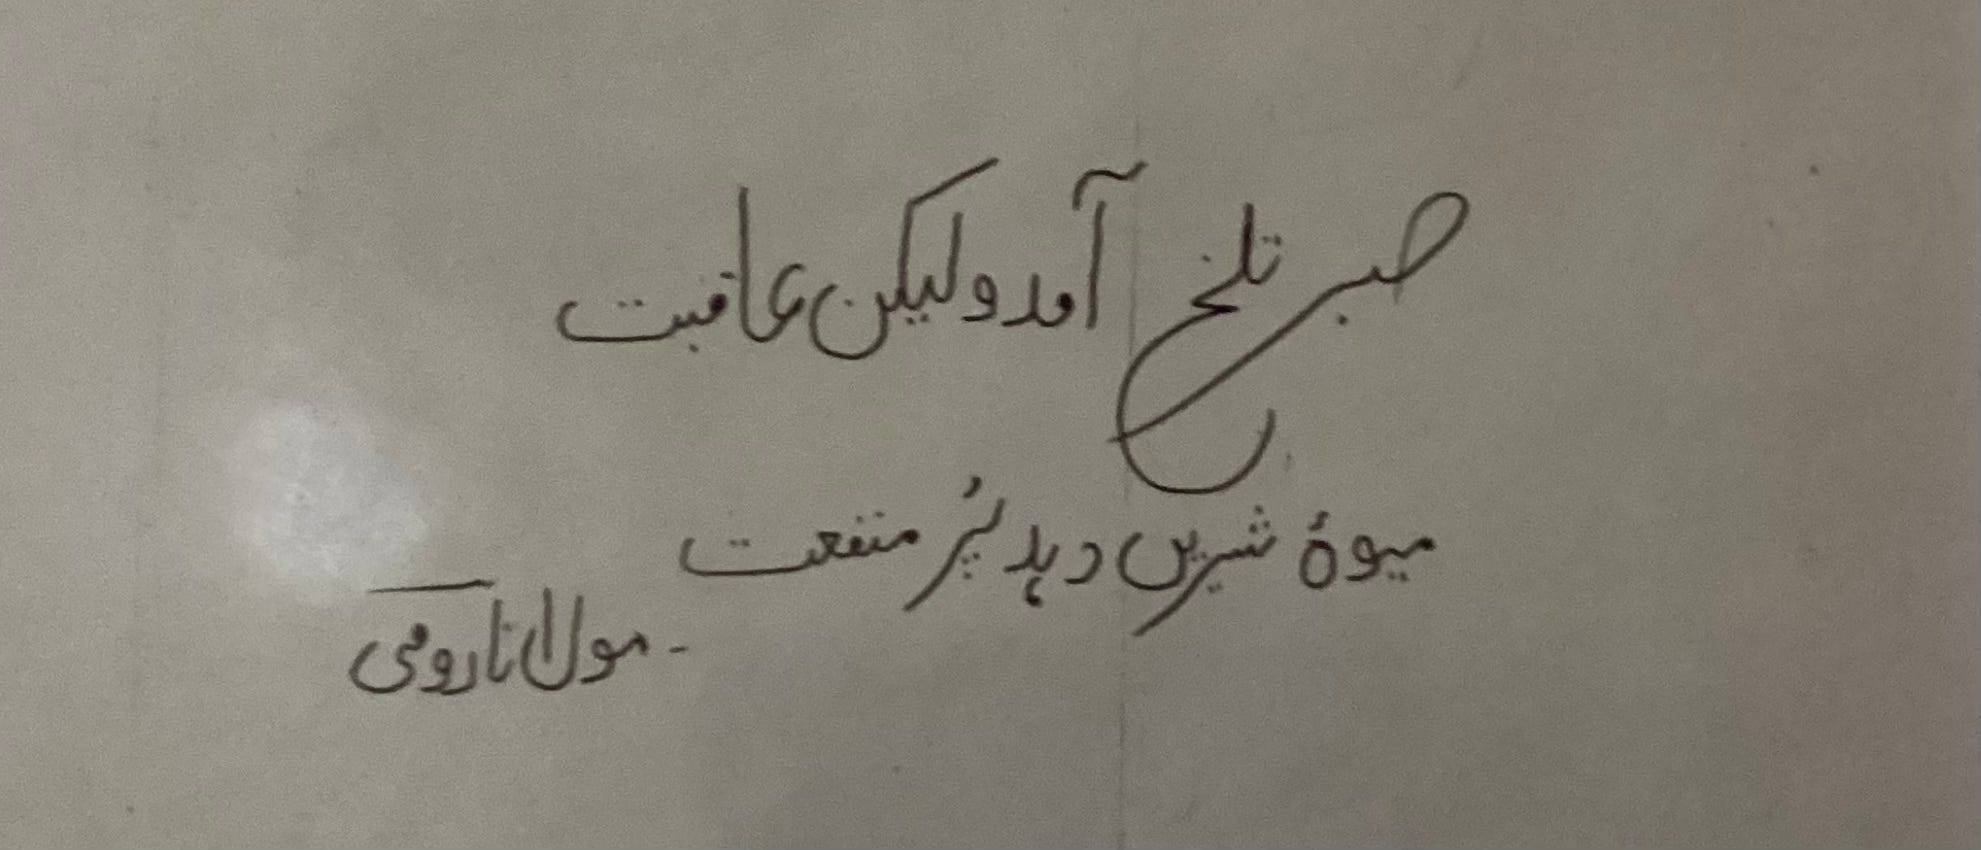 صبر تلخ آمد ولیکن عاقبت
میوۂ شیریں دہد پُر منفعت
۔ مولانا رومی